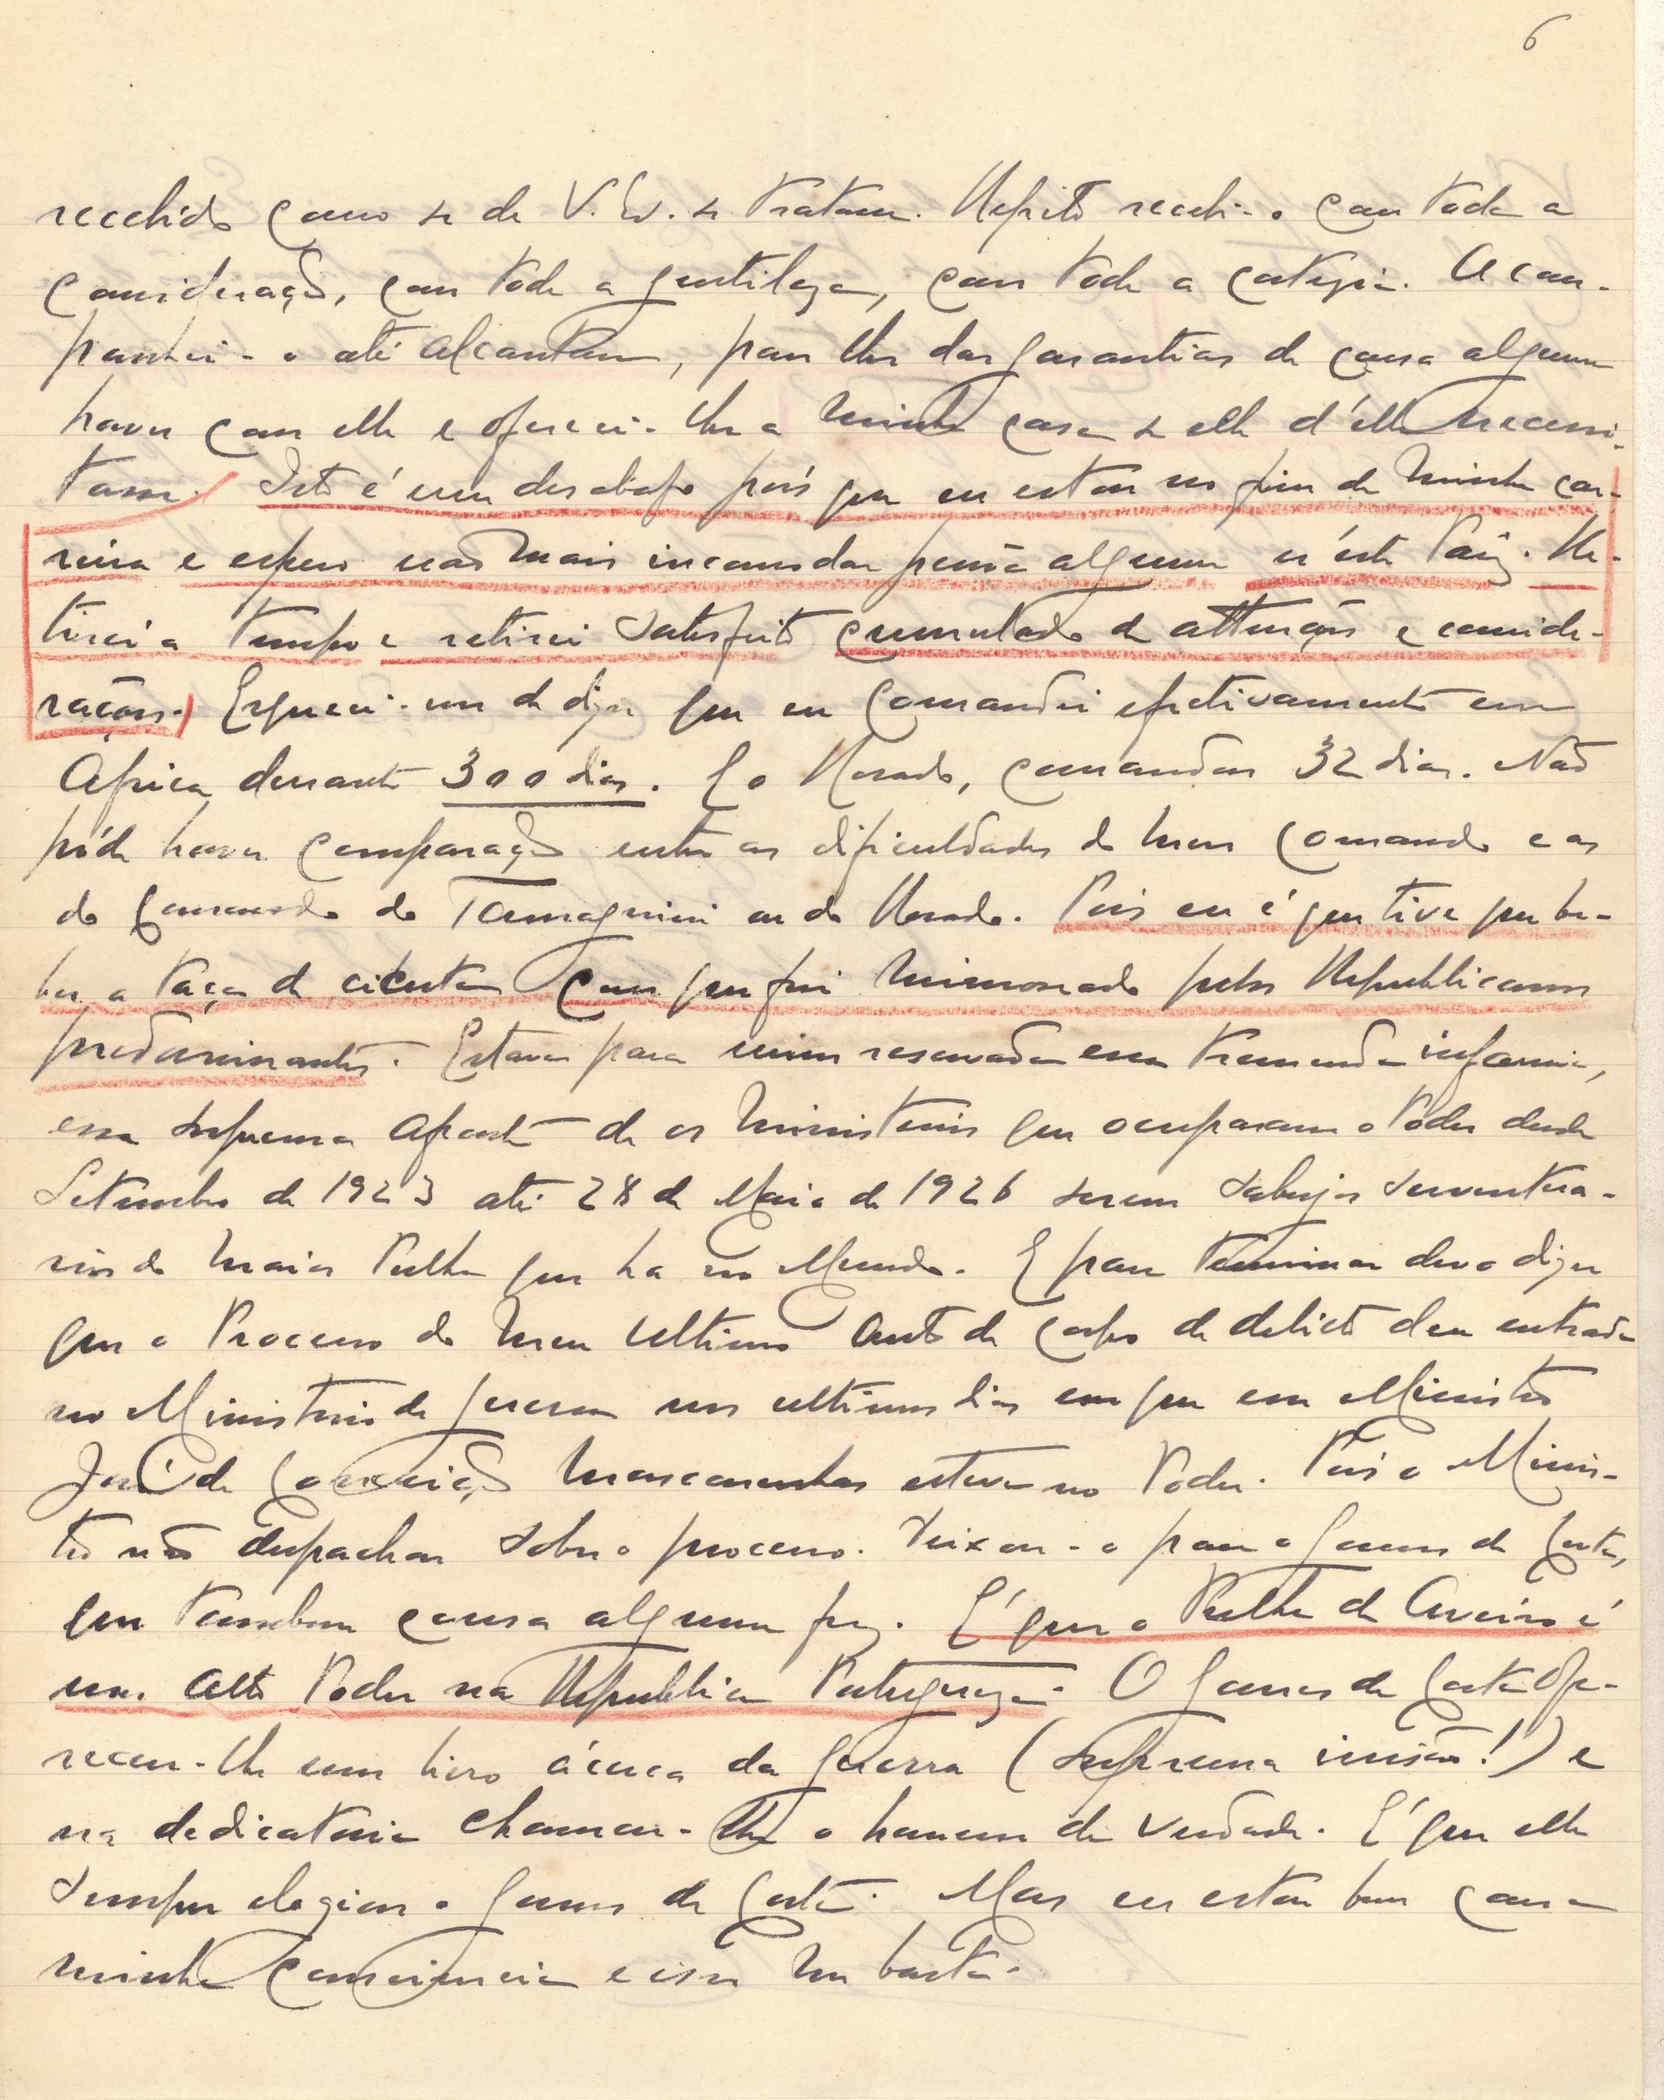 6
recebido como se de V. Ex. se tratasse. Repito recebi-o com toda a
consideração, com toda a gentileza, com toda a cortezia. Acom-
panhei-o até Alcantara, para lhe dar garantias de cousa alguma
haver com elle e ofereci-lhe a minha casa se elle d'ella necessi-
tasse. Isto é um desabafo pois que eu estou no fim da minha car-
reira e espero não mais incomodar pessôa alguma n'este Paiz. Re-
tirei a tempo e retirei satisfeito cumulado de attenções e conside-
rações. Esqueci-me de dizer que eu comandei efectivamente em
Africa durante 300 dias. E o Rosado, comandou 32 dias. Não
póde haver comparação entre as dificuldades do meu comando e as
do comando do Tamagnini ou do Rosado. Pois eu é que tive que be-
ber a taça de cicuta com que fui mimoseado pelos Republicanos
predominantes. Estava para mim reservada essa tremenda infamia,
essa suprema afronta de os ministerios que ocuparam o Poder desde
Setembro de 1923 até 28 de Maio de 1926 serem sabujos serventua-
rios do maior Pulha que ha no Mundo. E para terminar devo dizer
que o Processo do meu ultimo auto de corpo de delicto deu entrada
no Ministerio da Guerra nos ultimos dias em que em Ministro
José da Conceição Mascarenhas esteve no Poder. Pois o Minis-
tro não despachou sobre o processo. Deixou-o para o Gomes da Costa,
que tambem cousa alguma fez. É que o Pulha de Aveiro é
um alto Poder na Republica Portugueza. O Gomes da Costa ofe-
receu-lhe um livro ácerca da Guerra (suprema irrisão!) e
na dedicatoria chamou-lhe o homem da verdade. É que elle
sempre elogiou o Gomes da Costa. Mas eu estou bem com a
minha consciencia e isso me basta.